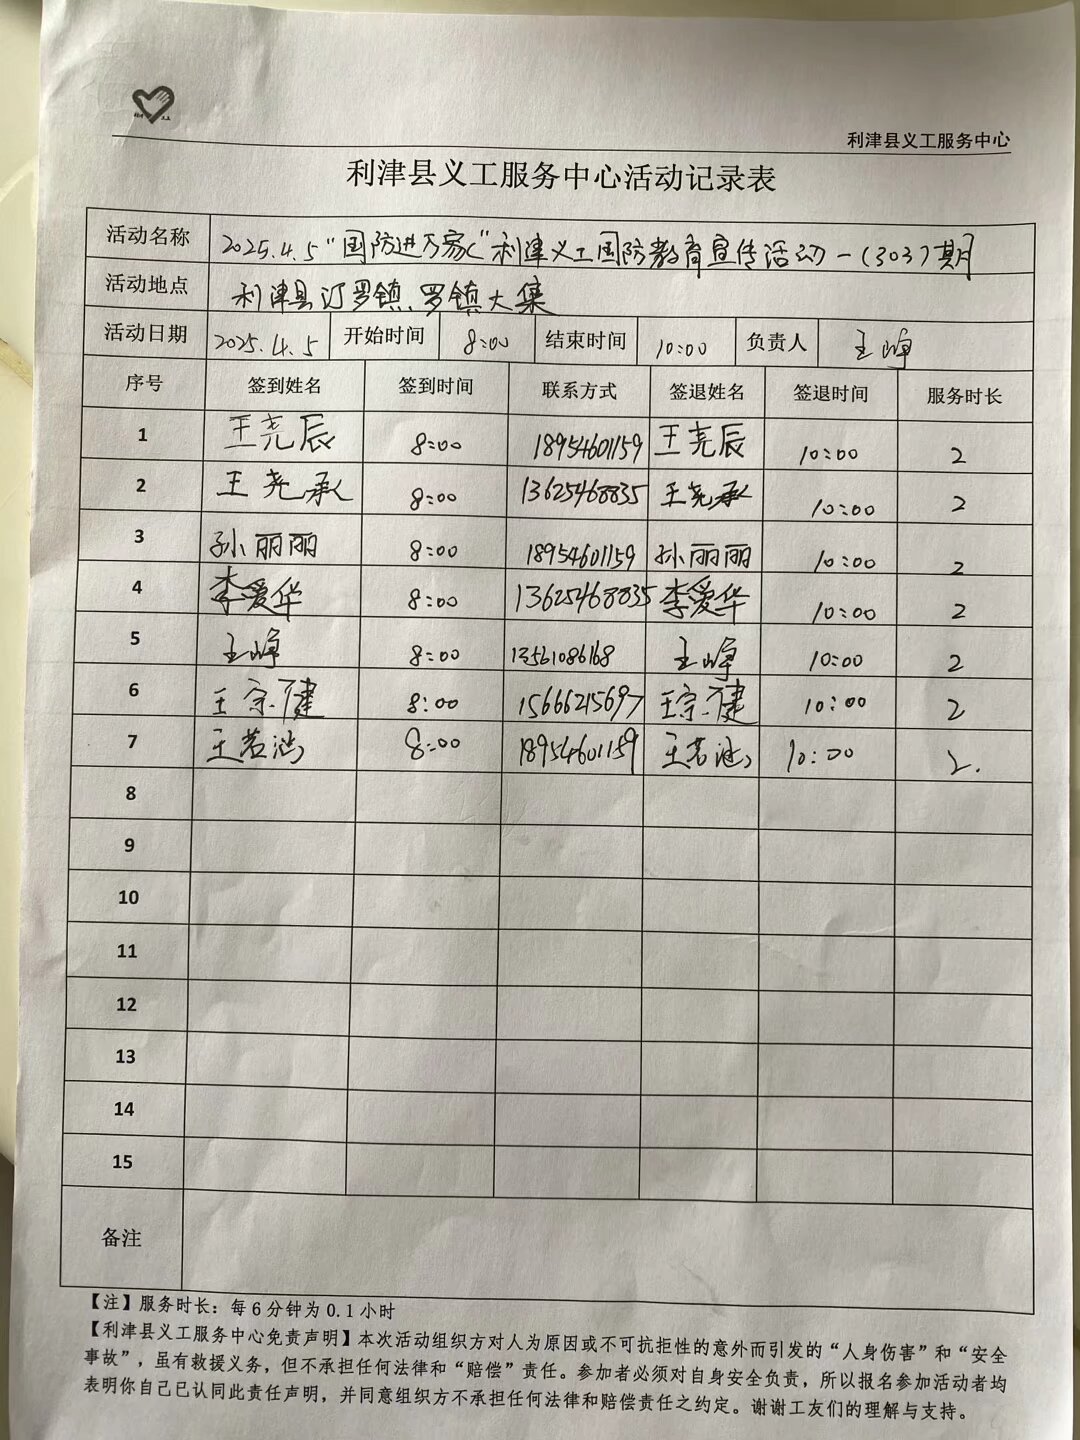 利津县义工服务中心
利津县义工服务中心活动记录表
活动名称 2025.4.5“国防进万家”利津义工国防教育宣传活动-(303)期
活动地点 利津县汀罗镇、罗镇大集
活动日期 2025.4.5 开始时间 8:00 结束时间 10:00 负责人 王峥
序号 签到姓名 签到时间 联系方式 签退姓名 签退时间 服务时长
1 王尧辰 8:00 18954601159 王尧辰 10:00 2
2 王尧承 8:00 13625468835 王尧承 10:00 2
3 孙丽丽 8:00 18954601159 孙丽丽 10:00 2
4 李爱华 8:00 13625468835 李爱华 10:00 2
5 王峥 8:00 13561086168 王峥 10:00 2
6 王宗健 8:00 15666215697 王宗健 10:00 2
7 王若涵 8:00 18954601159 王若涵 10:00 2.
8
9
10
11
12
13
14
15
备注
【注】服务时长：每6分钟为0.1小时
【利津县义工服务中心免责声明】本次活动组织方对人为原因或不可抗拒性的意外而引发的“人身伤害”和“安全
事故”，虽有救援义务，但不承担任何法律和“赔偿”责任。参加者必须对自身安全负责，所以报名参加活动者均
表明你自己已认同此责任声明，并同意组织方不承担任何法律和赔偿责任之约定。谢谢工友们的理解与支持。